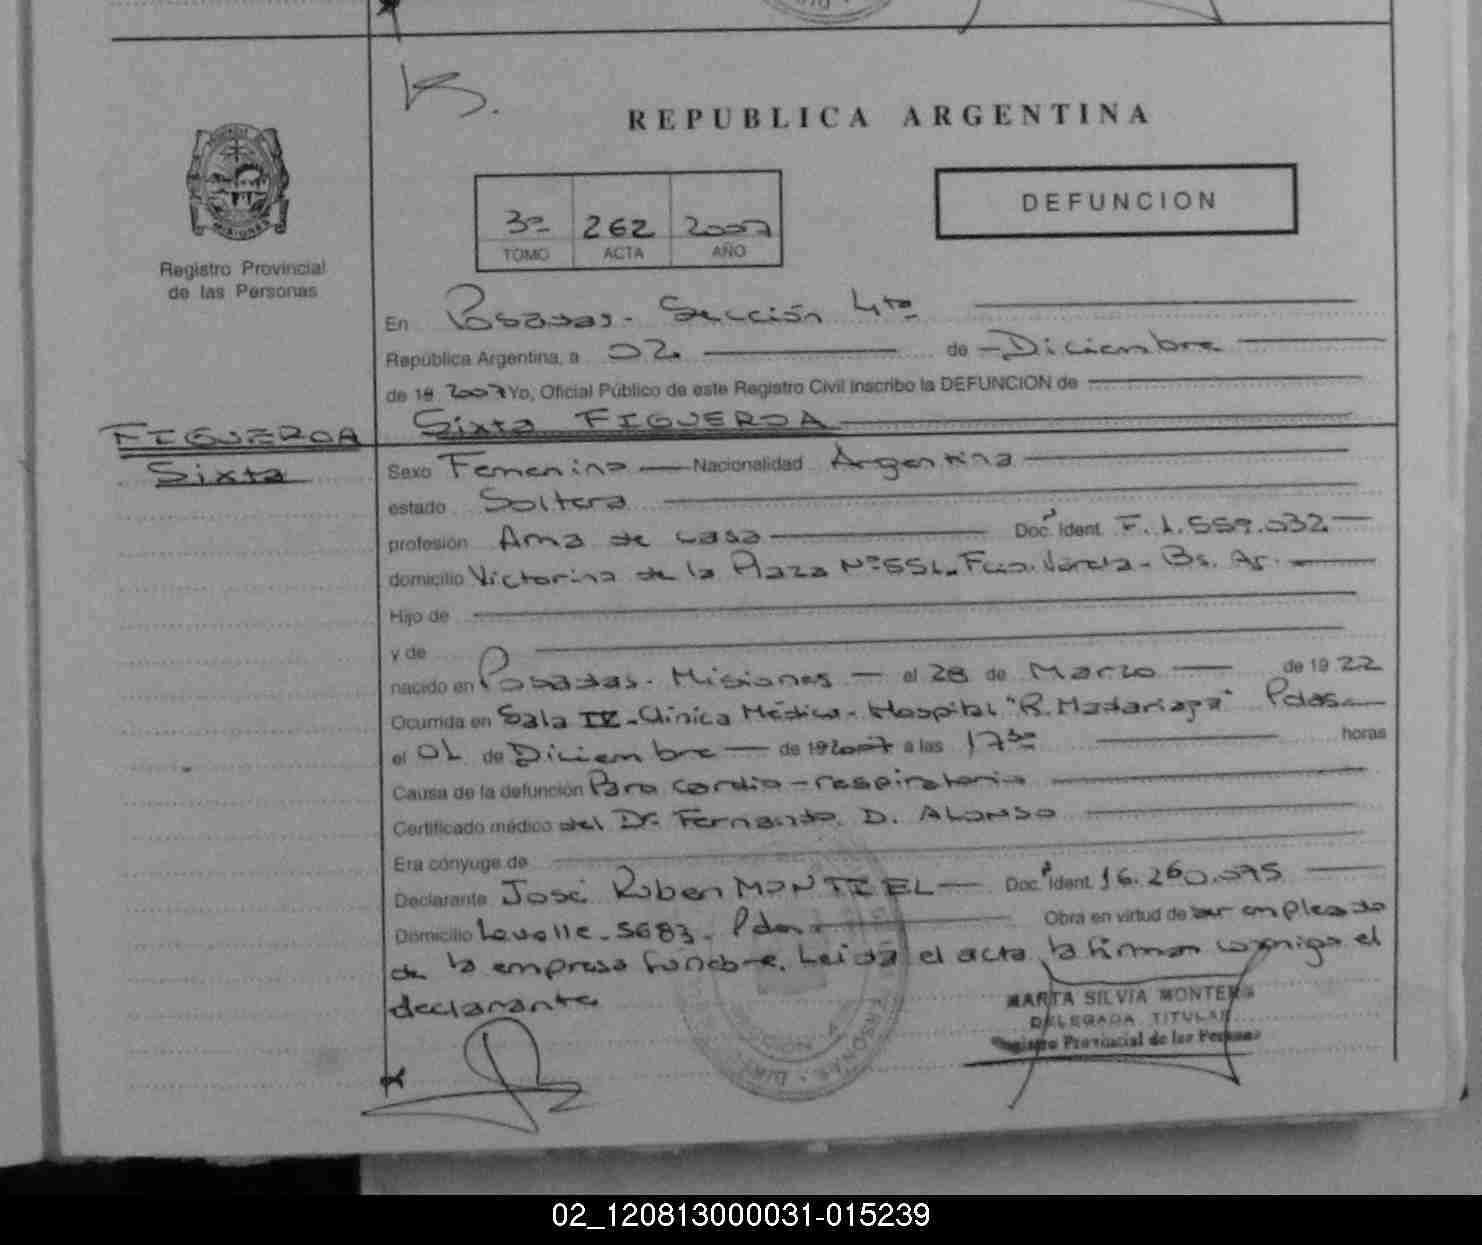 REPUBLICA ARGENTINA
DEFUNCION
3º 262 2007
TOMO ACTA AÑO
MISIONES
Registro Provincial
de las Personas
En Posadas - Sección 4ta
República Argentina, a 02 de Diciembre
de 19 2007 Yo, Oficial Público de este Registro Civil inscribo la DEFUNCION de
Sixta FIGUEROA
FIGUEROA
Sixta
Sexo Femenino Nacionalidad Argentina
estado Soltera
profesión Ama de casa Doc. Ident. F. 1.559.032
domicilio Victorino de la Plaza Nº 551 - Fcio. Varela - Bs. As.
Hijo de
y de
nacido en Posadas - Misiones el 28 de Marzo de 1922
Ocurrida en Sala IV - Clínica Médica - Hospital "R. Madariaga" Pdas
el 01 de Diciembre de 19 2007 a las 17 30 horas
Causa de la defunción Paro cardio-respiratorio
Certificado médico del Dr. Fernando D. ALONSO
Era cónyuge de
Declarante José Ruben MONTIEL Doc. Ident. 16.260.075
Domicilio Lavalle - 5683 - Pdas Obra en virtud de ser empleado
de la empresa fúnebre. Leida el acta, la firman conmigo el
declarante
MARTA SILVIA MONTERO
DELEGADA TITULAR
Registro Provincial de las Personas
02_120813000031-015239